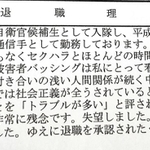 退職理
自衛官候補生として入隊し、平成
通信手として勤務しております。
もなくセクハラとほとんどの時間
被害者バッシングは私にとって
付き合いの浅い人間関係が続く中
では社会正義が全うされていると
とを「トラブルが多い」と評され
非常に残念です。失望しました。
した。ゆえに退職を承認されたく